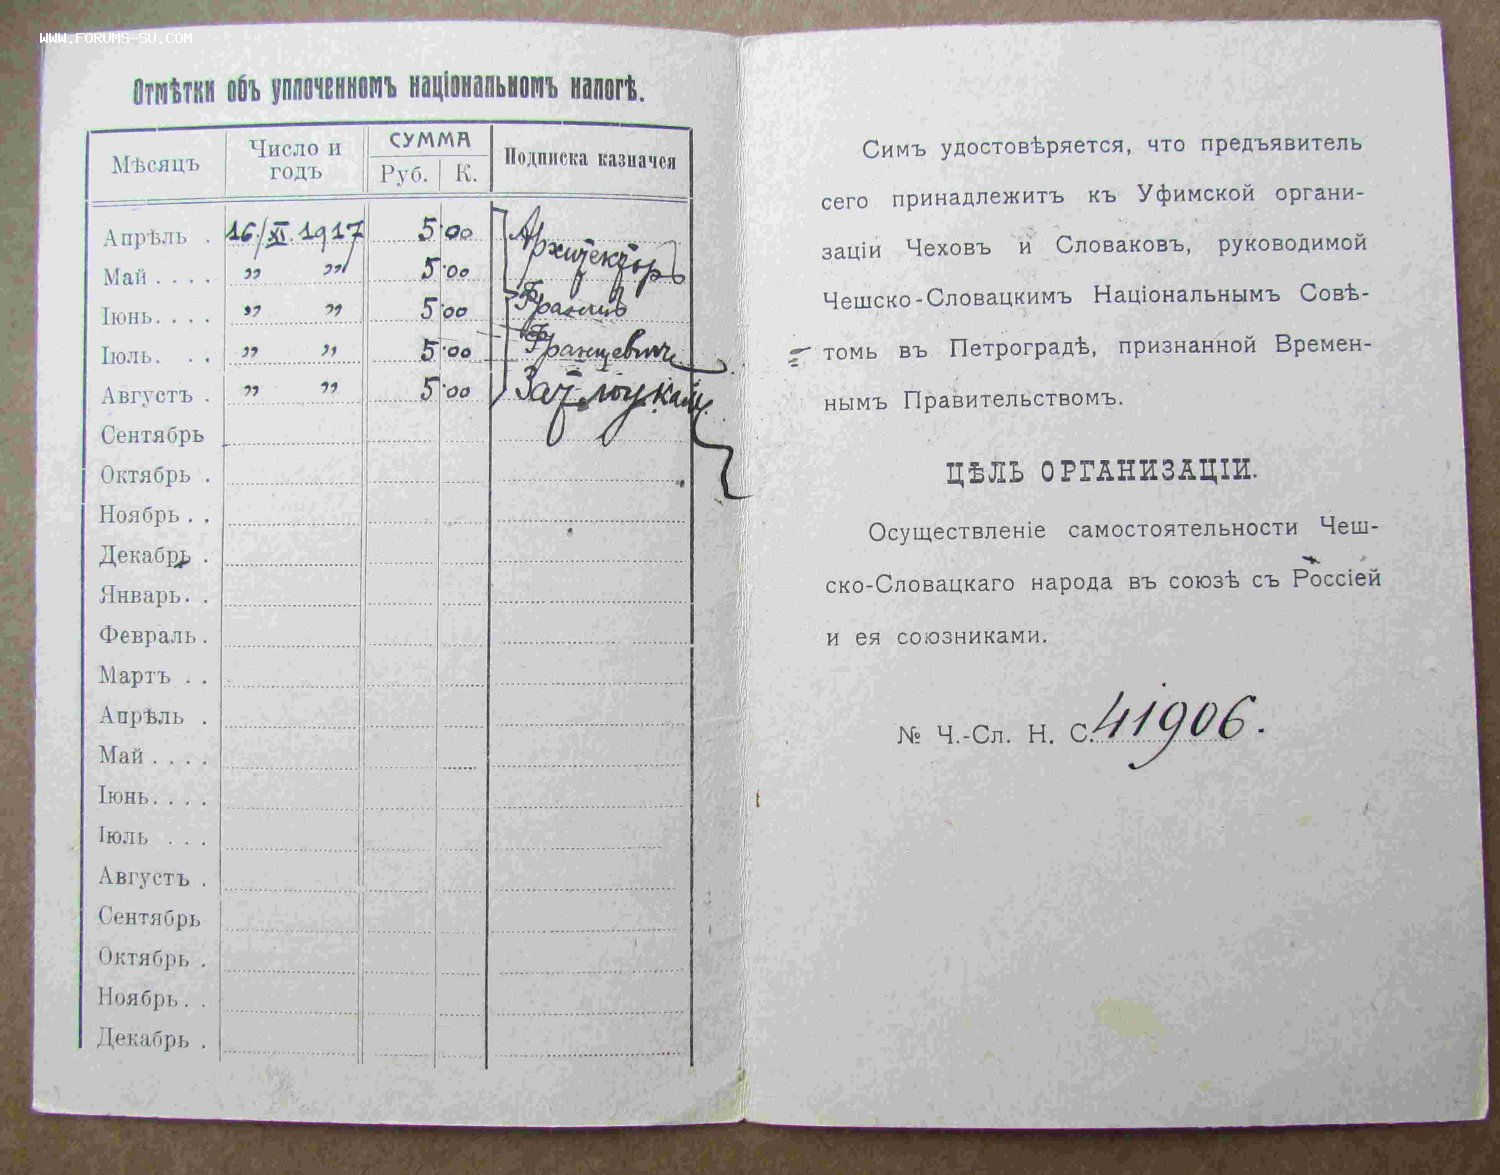 WWW.FORUMS-SU.COM
Отмѣтки объ уплоченномъ національномъ налогѣ.
Мѣсяцъ Число и годъ СУММА Руб. К. Подписка казначея
Апрѣль . 16/XI. 1917 5 00 Архитекторъ
Май . . . . " " 5 00
Іюнь. . . . " " 5 00 Францъ
Іюль. . . " " 5 00 Францевичъ
Августъ . " " 5 00
Сентябрь
Октябрь .
Ноябрь . .
Декабрь .
Январь. .
Февраль .
Мартъ . .
Апрѣль .
Май . . . .
Іюнь. . . .
Іюль . . .
Августъ .
Сентябрь
Октябрь .
Ноябрь. .
Декабрь .
Симъ удостовѣряется, что предъявитель
сего принадлежитъ къ Уфимской органи-
заціи Чеховъ и Словаковъ, руководимой
Чешско-Словацкимъ Національнымъ Совѣ-
томъ въ Петроградѣ, признанной Времен-
нымъ Правительствомъ.
ЦѢЛЬ ОРГАНИЗАЦІИ.
Осуществленіе самостоятельности Чеш-
ско-Словацкаго народа въ союзѣ съ Россіей
и ея союзниками.
№ Ч.-Сл. Н. С. 41906.